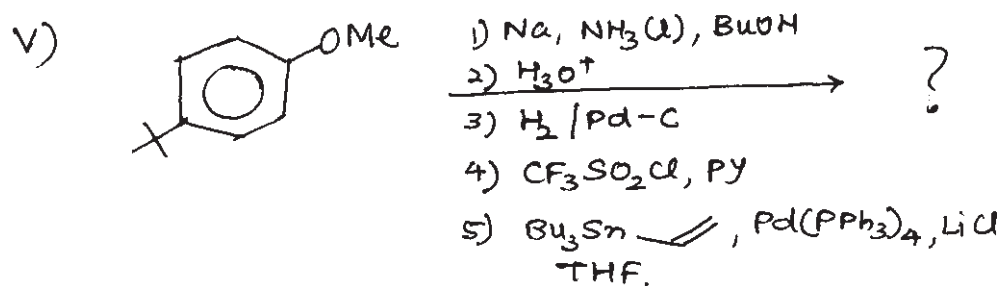 V)
OMe
1) Na, NH3(l), BuOH
2) H3O+
3) H2/Pd-C
4) CF3SO2Cl, PY
5) Bu3Sn , Pd(PPh3)4, LiCl
THF.
?